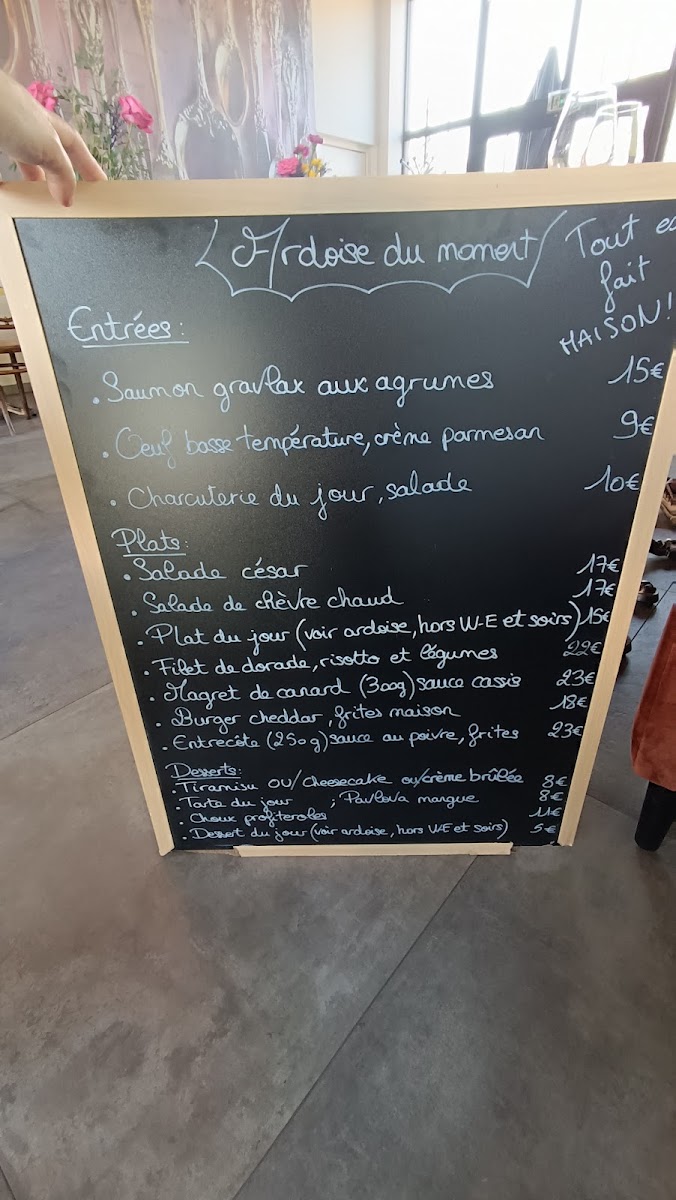 Ardoise du moment
Tout es
fait
MAISON!
Entrées:
• Saumon gravlax aux agrumes 15€
• Oeuf basse température, crème parmesan 9€
• Charcuterie du jour, salade 10€
Plats:
• Salade césar 17€
• Salade de chèvre chaud 17€
• Plat du jour (voir ardoise, hors W-E et soirs) 15€
• Filet de dorade, risotto et légumes 22€
• Magret de canard (300g) sauce cassis 23€
• Burger cheddar, frites maison 18€
• Entrecôte (250g) sauce au poivre, frites 23€
Desserts:
• Tiramisu OU/ Cheesecake ou/crème brûlée 8€
• Tarte du jour ; Pavlova mangue 8€
• Choux profiteroles 11€
• Dessert du jour (voir ardoise, hors W-E et soirs) 5€